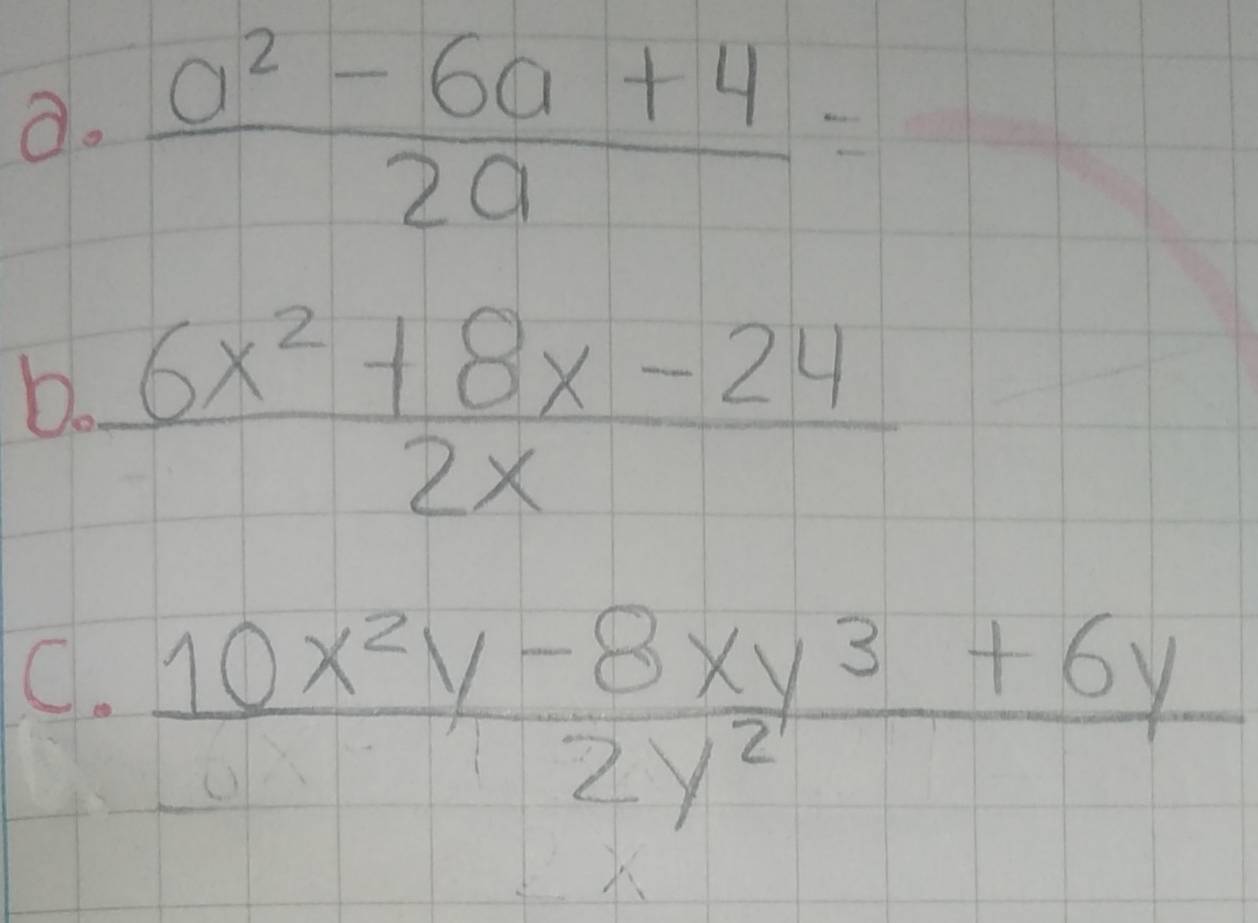 a. a² - 6a + 4 =
2a
b. 6x² + 8x - 24
2x
c. 10x²y - 8xy³ + 6y
2y²